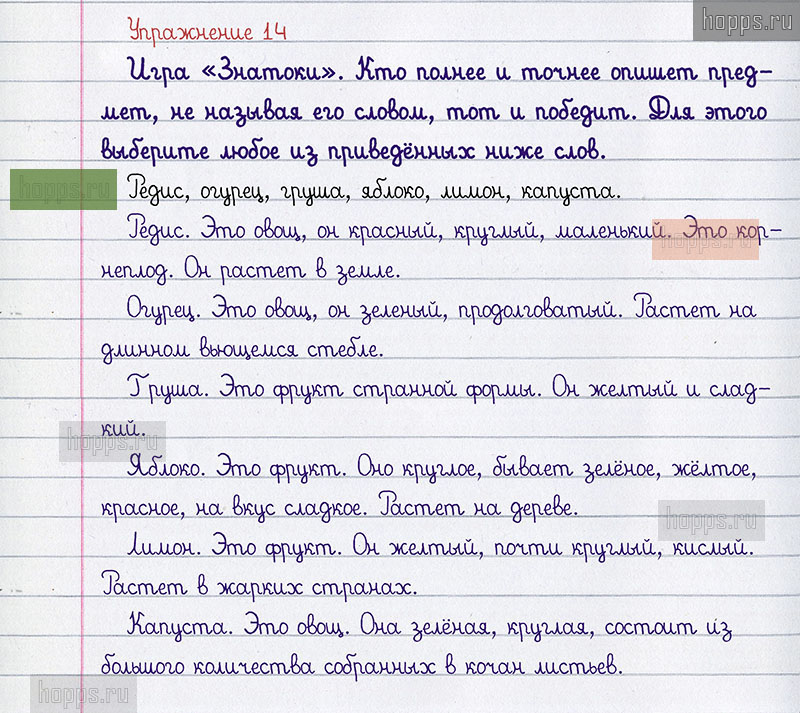 hopps.ru
Упражнение 14
Игра «Знатоки». Кто полнее и точнее опишет пред-
мет, не называя его словом, тот и победит. Для этого
выберите любое из приведённых ниже слов.
hopps.ru
Редис, огурец, груша, яблоко, лимон, капуста.
Редис. Это овощ, он красный, круглый, маленький. Это кор-
hopps.ru
неплод. Он растет в земле.
Огурец. Это овощ, он зеленый, продолговатый. Растет на
длинном вьющемся стебле.
Груша. Это фрукт странной формы. Он желтый и слад-
кий.
hopps.ru
Яблоко. Это фрукт. Оно круглое, бывает зелёное, жёлтое,
красное, на вкус сладкое. Растет на дереве.
hopps.ru
Лимон. Это фрукт. Он желтый, почти круглый, кислый.
Растет в жарких странах.
Капуста. Это овощ. Она зелёная, круглая, состоит из
большого количества собранных в кочан листьев.
hopps.ru